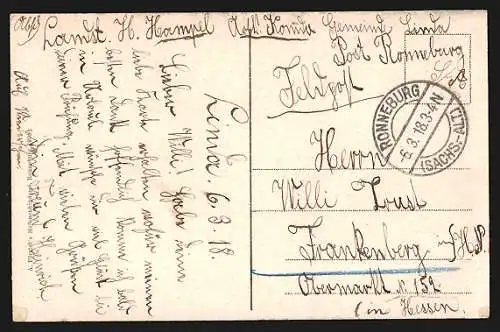 Landst. H. Hampel
Gemeinde Linda
Post Ronneburg
Feldpost
RONNEBURG
6.3.18.3-4N
(SACHS.-ALT.)
Linda 6.3.18
Lieber Willi! Habe deine
liebe Karte erhalten wofür meinen
besten Dank. Hoffentlich komme ich bald
in Urlaub, wünsche dir viel Glück bei
deiner Prüfung. Mit vielen Grüßen
Heinrich
Herrn
Willi Trust
Frankenberg
Obermarkt N. 152
(in Hessen.